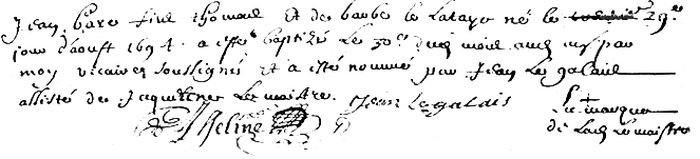 Jean bare fils thomas et de barbe le Lataye né le 29e
jour d'aoust 1694 a esté baptizé le 30e dud mois aud esf par
moy vicaire soussigné et a esté nommé par Jean le galais
assisté de Jacqueline Le maistre. Jean Legalais
La marque
Heline de lad le maistre